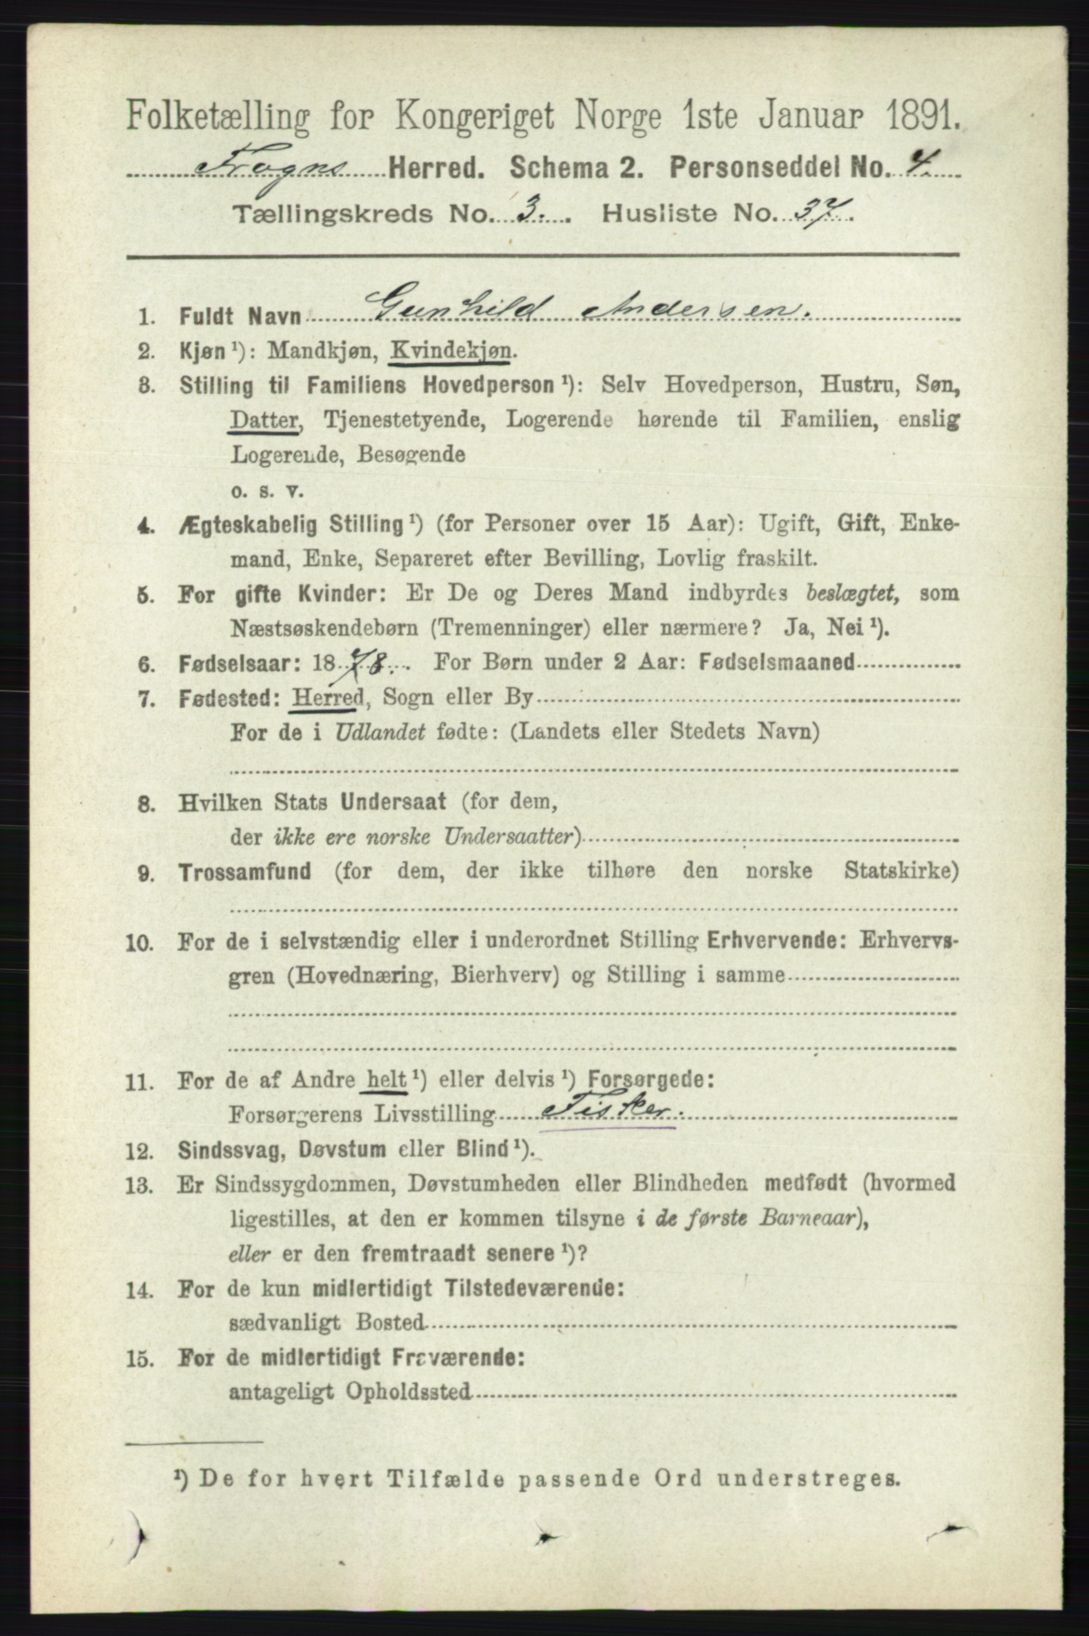 Folketælling for Kongeriget Norge 1ste Januar 1891.
Frogns Herred. Schema 2. Personseddel No. 4.
Tællingskreds No. 3. Husliste No. 37.
1. Fuldt Navn Gunhild Andersen.
2. Kjøn ¹): Mandkjøn, Kvindekjøn.
3. Stilling til Familiens Hovedperson ¹): Selv Hovedperson, Hustru, Søn,
Datter, Tjenestetyende, Logerende hørende til Familien, enslig
Logerende, Besøgende
o. s. v.
4. Ægteskabelig Stilling ¹) (for Personer over 15 Aar): Ugift, Gift, Enke-
mand, Enke, Separeret efter Bevilling, Lovlig fraskilt.
5. For gifte Kvinder: Er De og Deres Mand indbyrdes beslægtet, som
Næstsøskendebørn (Tremenninger) eller nærmere? Ja, Nei ¹).
6. Fødselsaar: 1878. For Børn under 2 Aar: Fødselsmaaned
7. Fødested: Herred, Sogn eller By
For de i Udlandet fødte: (Landets eller Stedets Navn)
8. Hvilken Stats Undersaat (for dem,
der ikke ere norske Undersaatter)
9. Trossamfund (for dem, der ikke tilhøre den norske Statskirke)
10. For de i selvstændig eller i underordnet Stilling Erhvervende: Erhvervs-
gren (Hovednæring, Bierhverv) og Stilling i samme
11. For de af Andre helt ¹) eller delvis ¹) Forsørgede:
Forsørgerens Livsstilling Fisker.
12. Sindssvag, Døvstum eller Blind ¹).
13. Er Sindssygdommen, Døvstumheden eller Blindheden medfødt (hvormed
ligestilles, at den er kommen tilsyne i de første Barneaar),
eller er den fremtraadt senere ¹)?
14. For de kun midlertidigt Tilstedeværende:
sædvanligt Bosted
15. For de midlertidigt Fraværende:
antageligt Opholdssted
¹) De for hvert Tilfælde passende Ord understreges.